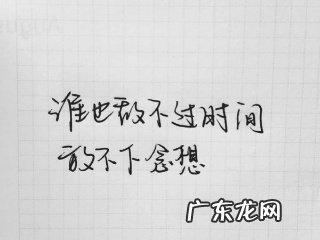 谁也敌不过时间
放不下念想
广东龙网